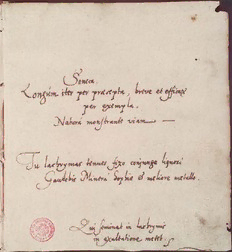 Seneca.
Longum iter per præcepta, breve et efficax
per exempla.
Naturâ monstrante viam
Tu lachrymas tennes, fixo conjuge
Gaudebis Sophie et meliore metallo.
Qui seminat in lachrymis
in exultatione metet.